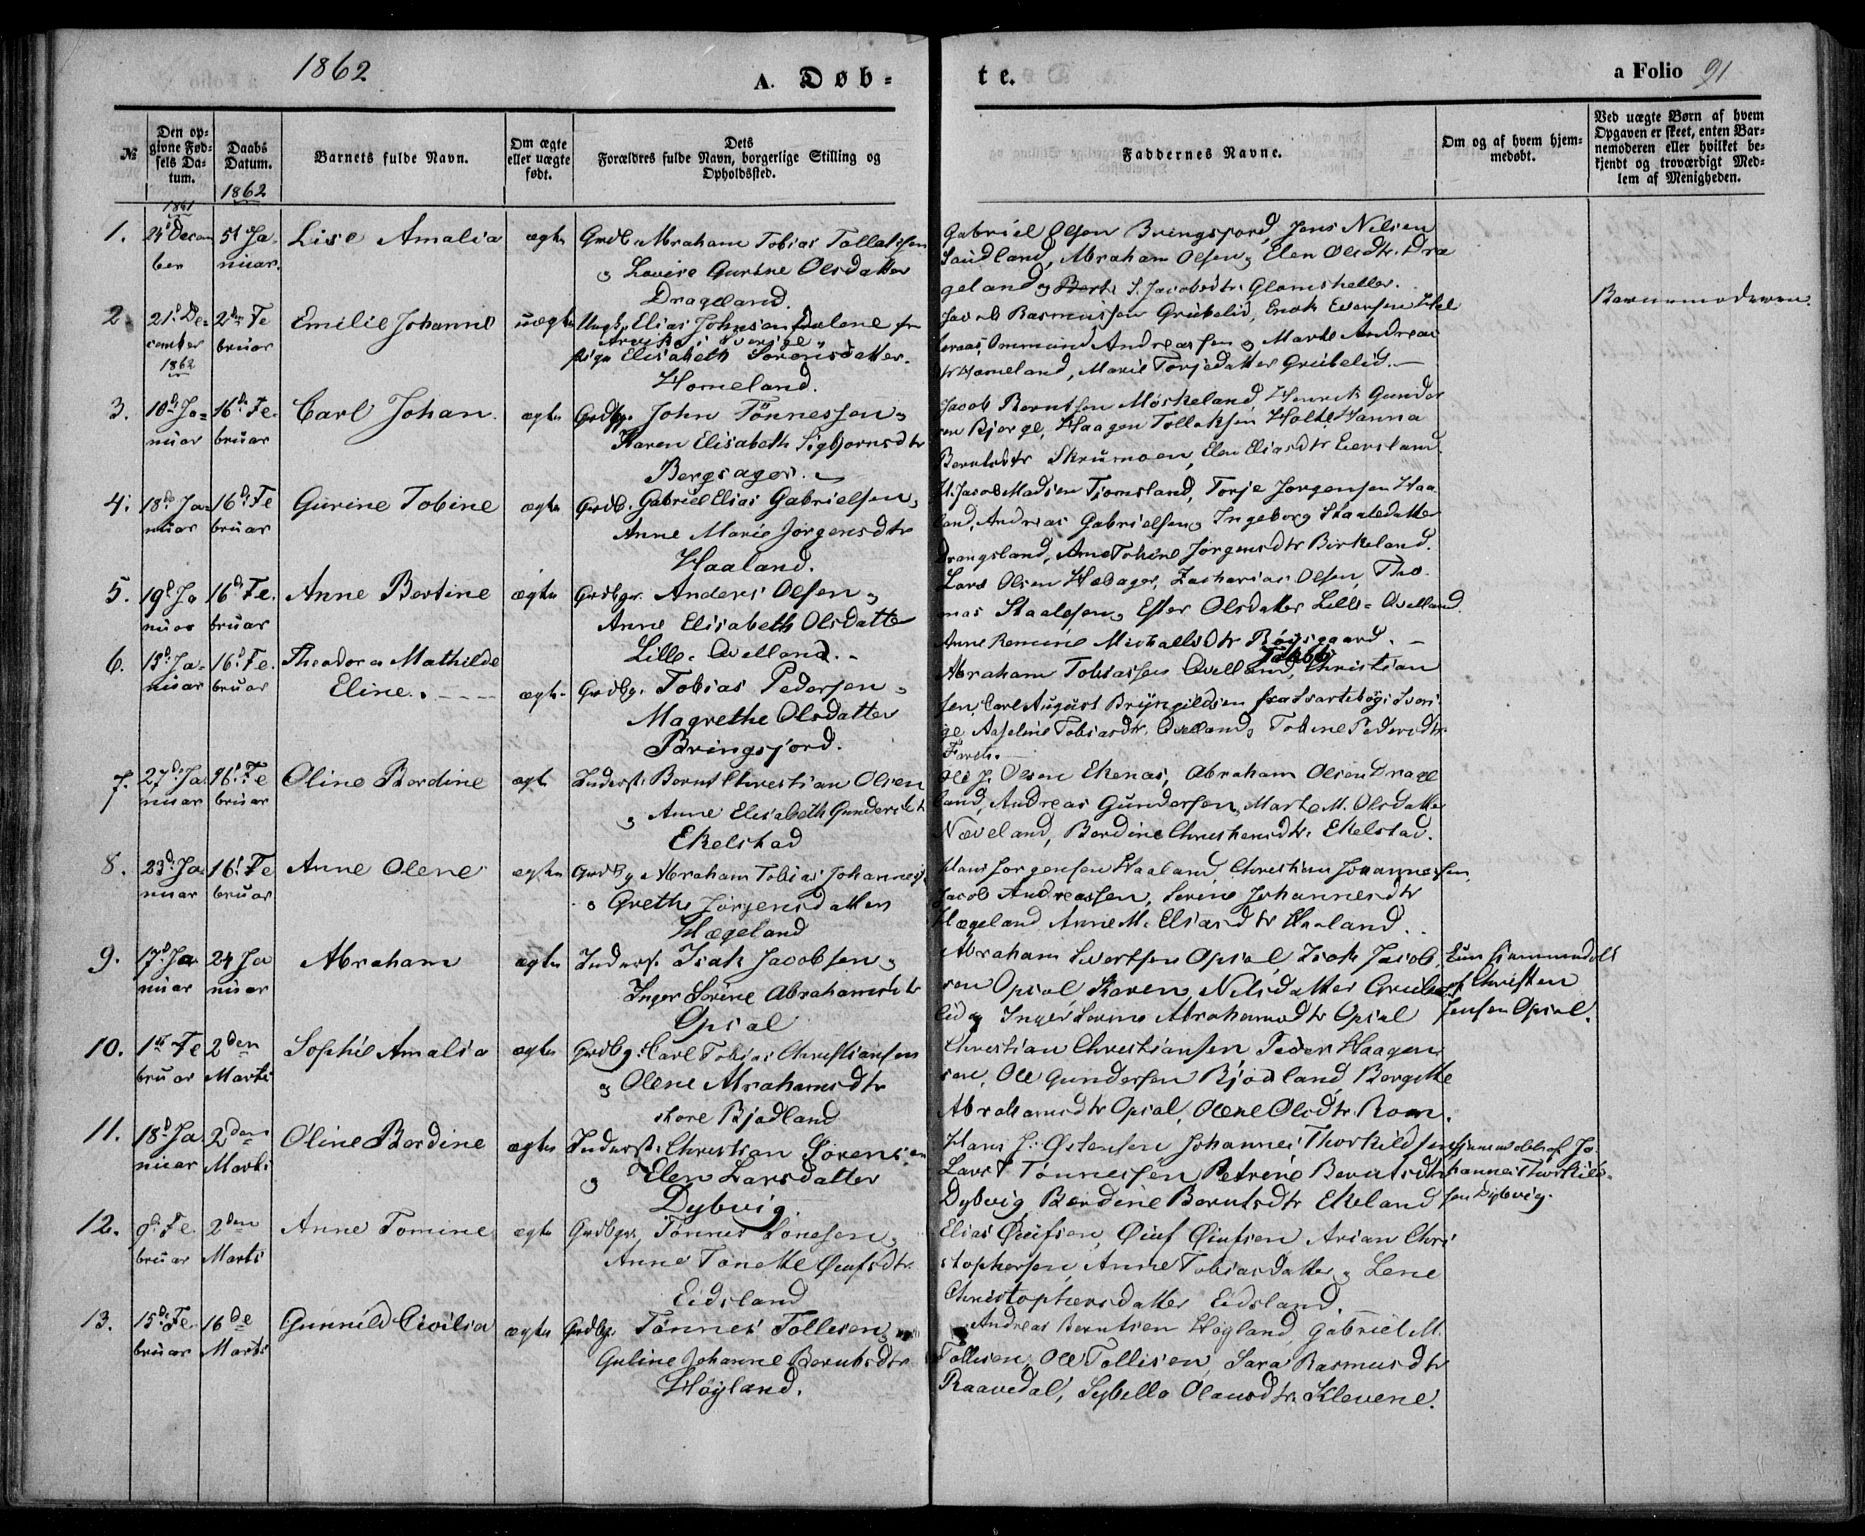 1862
A. Døb-
te.
a Folio 91
№
Den op-
givne Fød-
sels Da-
tum.
Daabs
Datum.
1862
Barnets fulde Navn.
Om ægte
eller uægte
født.
Dets
Forældres fulde Navn, borgerlige Stilling og
Opholdssted.
Faddernes Navne.
Om og af hvem hjem-
medøbt.
Ved uægte Børn af hvem
Opgaven er skeet, enten Bar-
nemoderen eller hvilket be-
kjendt og troværdigt Med-
lem af Menigheden.
1861
1. 24 Decem
ber
5t Ja-
nuar.
Lise Amalia
ægte
Grdb. Abraham Tobias Tollaksen
og Lovise Gurine Olsdatter
Drageland.
Gabriel Olsen Bringsjord, Jens Nilsen
Saudland, Abraham Olsen, Elen Olsdtr. Dra
geland og S. Jacobsdtr. Glomsheller.
2. 21de De-
cember
2den Fe
bruar
Emilie Johanne
uægte
Ungk. Elias Johnsen Dalene fra
Arvika i Sverige
pige Elisabeth Sørensdatter.
Homeland.
Jacob Rasmussen Gribelid, Enok Evertsen
Ommund Andreassen og Marte Andreas
dtr Homeland, Marie Torjedatter Griebelid.
Barnemoderen.
1862
3. 10de Ja-
nuar
16de Fe.
bruar
Carl Johan.
ægte
Grdbgr. John Tønnessen og
Karen Elisabeth Sigbjørnsdtr
Bergsager.
Jacob Berntsen Møskeland, Henrik Gunder
sen Bjerge, Haagen Tollaksen Holte, Hanna
Berntsdtr Skrumoen, Elen Eliasdtr Eiersland.
4. 18de Ja-
nuar
16de Fe
bruar
Gurine Tobine
ægte
Grdb. Gabriel Elias Gabrielsen og
Anne Marie Jørgensdtr
Haaland.
Jacob Madsen Tjomsland, Torje Jørgensen Haa
land, Andreas Gabrielsen, Ingeborg Staalesdatter
Drangsland, Ane Tobine Jørgensdtr Birkeland.
5. 19de Ja
nuar
16de Fe.
bruar
Anne Bertine
ægte
Grdbgr. Anders Olsen og
Anne Elisabeth Olsdatter
Lille-Qvelland.
Lars Olsen Hæbager, Zacharias Olsen, Tho
mas Staalesen og Ester Olsdatter Lille-Qvelland.
Anne Romine Michaelsdtr Røysgaard.
6. 13de Ja-
nuar
16de Fe.
bruar
Theodora Mathilde
Eline.
ægte
Grdbg. Tobias Pedersen og
Magrethe Olsdatter
Bringsjord.
Abraham Tobiassen Qvelland, Christian
sen, Carl August Bryngildsen fra Svartebog i Sveri-
ge, Aseline Tobiasdtr. Qvelland, Tobine Pedersdtr
7. 27de Ja
nuar
16de Fe
bruar
Oline Berdine
ægte
Inderst: Bernt Christian Olsen
og Anne Elisabeth Gundersdtr
Ekelstad
Ole J. Olsen Ekenæs, Abraham Olsen Drage
land, Andreas Gundersen, Marte M. Olsdatter
Næveland, Berdine Christensdtr. Ekelstad.
8. 23de Ja-
nuar
16de Fe
bruar
Anne Olene
ægte
Grdbg. Abraham Tobias Johannes
og Grethe Jørgensdatter
Hægeland
Hans Jørgensen Haaland, Christian Johannessen
Jacob Andreassen, Serine Johannesdtr
Hægeland, Anne M. Eliasdtr Haaland.
9. 17de Ja
nuar
24 Ja
nuar
Abraham
ægte
Inderst. Isak Jacobsen og
Inger Serine Abrahamsdtr
Opsal
Abraham Evertsen Opsal, Isak Jacob
sen Opsal, Karen Nilsdatter Griebe
lid og Inger Serine Abrahamsdtr Opsal
af Christen
Jensen Opsal.
10. 1ste Fe
bruar
2den
Marts
Sophie Amalia
ægte
Grdbg. Carl Tobias Christiansen
og Olene Abrahamsdtr
store Bjødland
Christian Christiansen, Peder Haagen
sen, Ole Gundersen Bjødland, Bergitte
Abrahamsdtr Opsal, Olene Olsdtr. Rom.
11. 18de Ja
nuar
2den
Marts
Oline Berdine
ægte
Inderst: Christian Sørensen
og Elen Larsdatter
Dybvig.
Hans J. Østensen, Johannes Thorkildsen
Lars T. Tønnessen, Petrine Berntsdtr
Dybvig, Berdine Berntsdtr Ekeland
Hjemmedøbt af Jo
hannes Thorkild-
sen Dybvig.
12. 8de Fe.
bruar
2den
Marts
Anne Tomine
ægte
Grdbgr. Tønnes Tønesen og
Anne Tonette Øiufsdtr
Eidsland
Elias Øiufsen, Øiuf Øiufsen, Arian Chri
stophersen, Anne Tobiasdatter og Lene
Christophersdatter Eidsland.
13. 15de Fe.
bruar
16de
Marts
Gunnild Cicilia
ægte
Grdbgr. Tønnes Tollisen og
Guline Johanne Berntsdtr
Høyland.
Andreas Berntsen Høyland, Gabriel M.
Tollisen, Ole Tollisen, Sara Rasmusdtr
Raavedal, Sybella Olausdtr. Klevene.